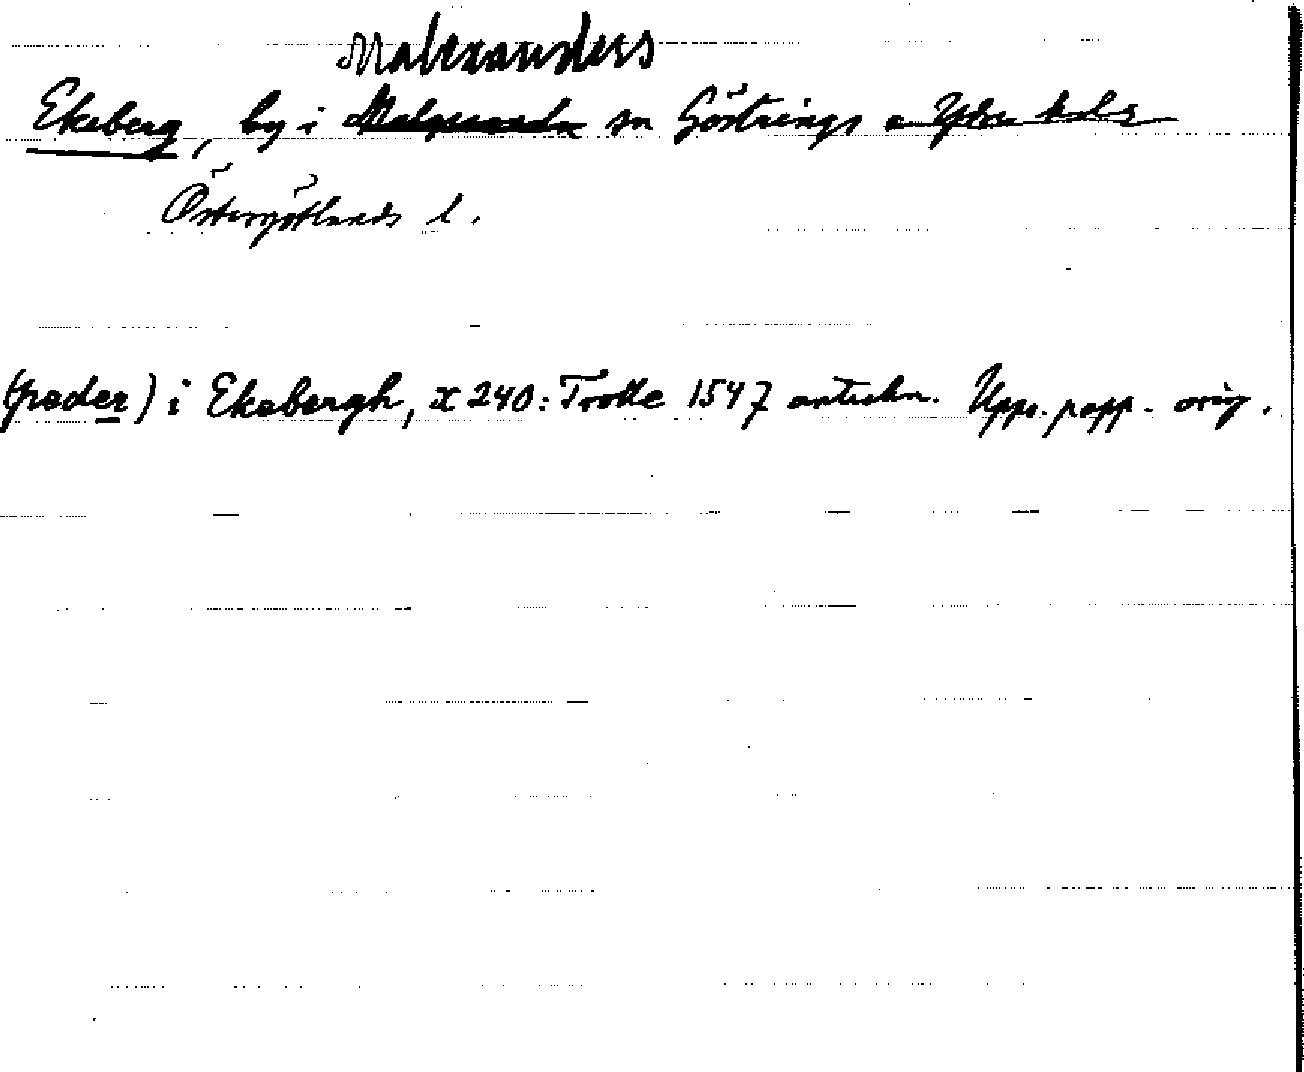 Malexanders
Ekeberg, by i sn Göstrings o Ydre hdr
Östergötlands l.
(peder) i Ekebergh, x 240: Trolle 1547 anteckn. Upps. papp. orig.